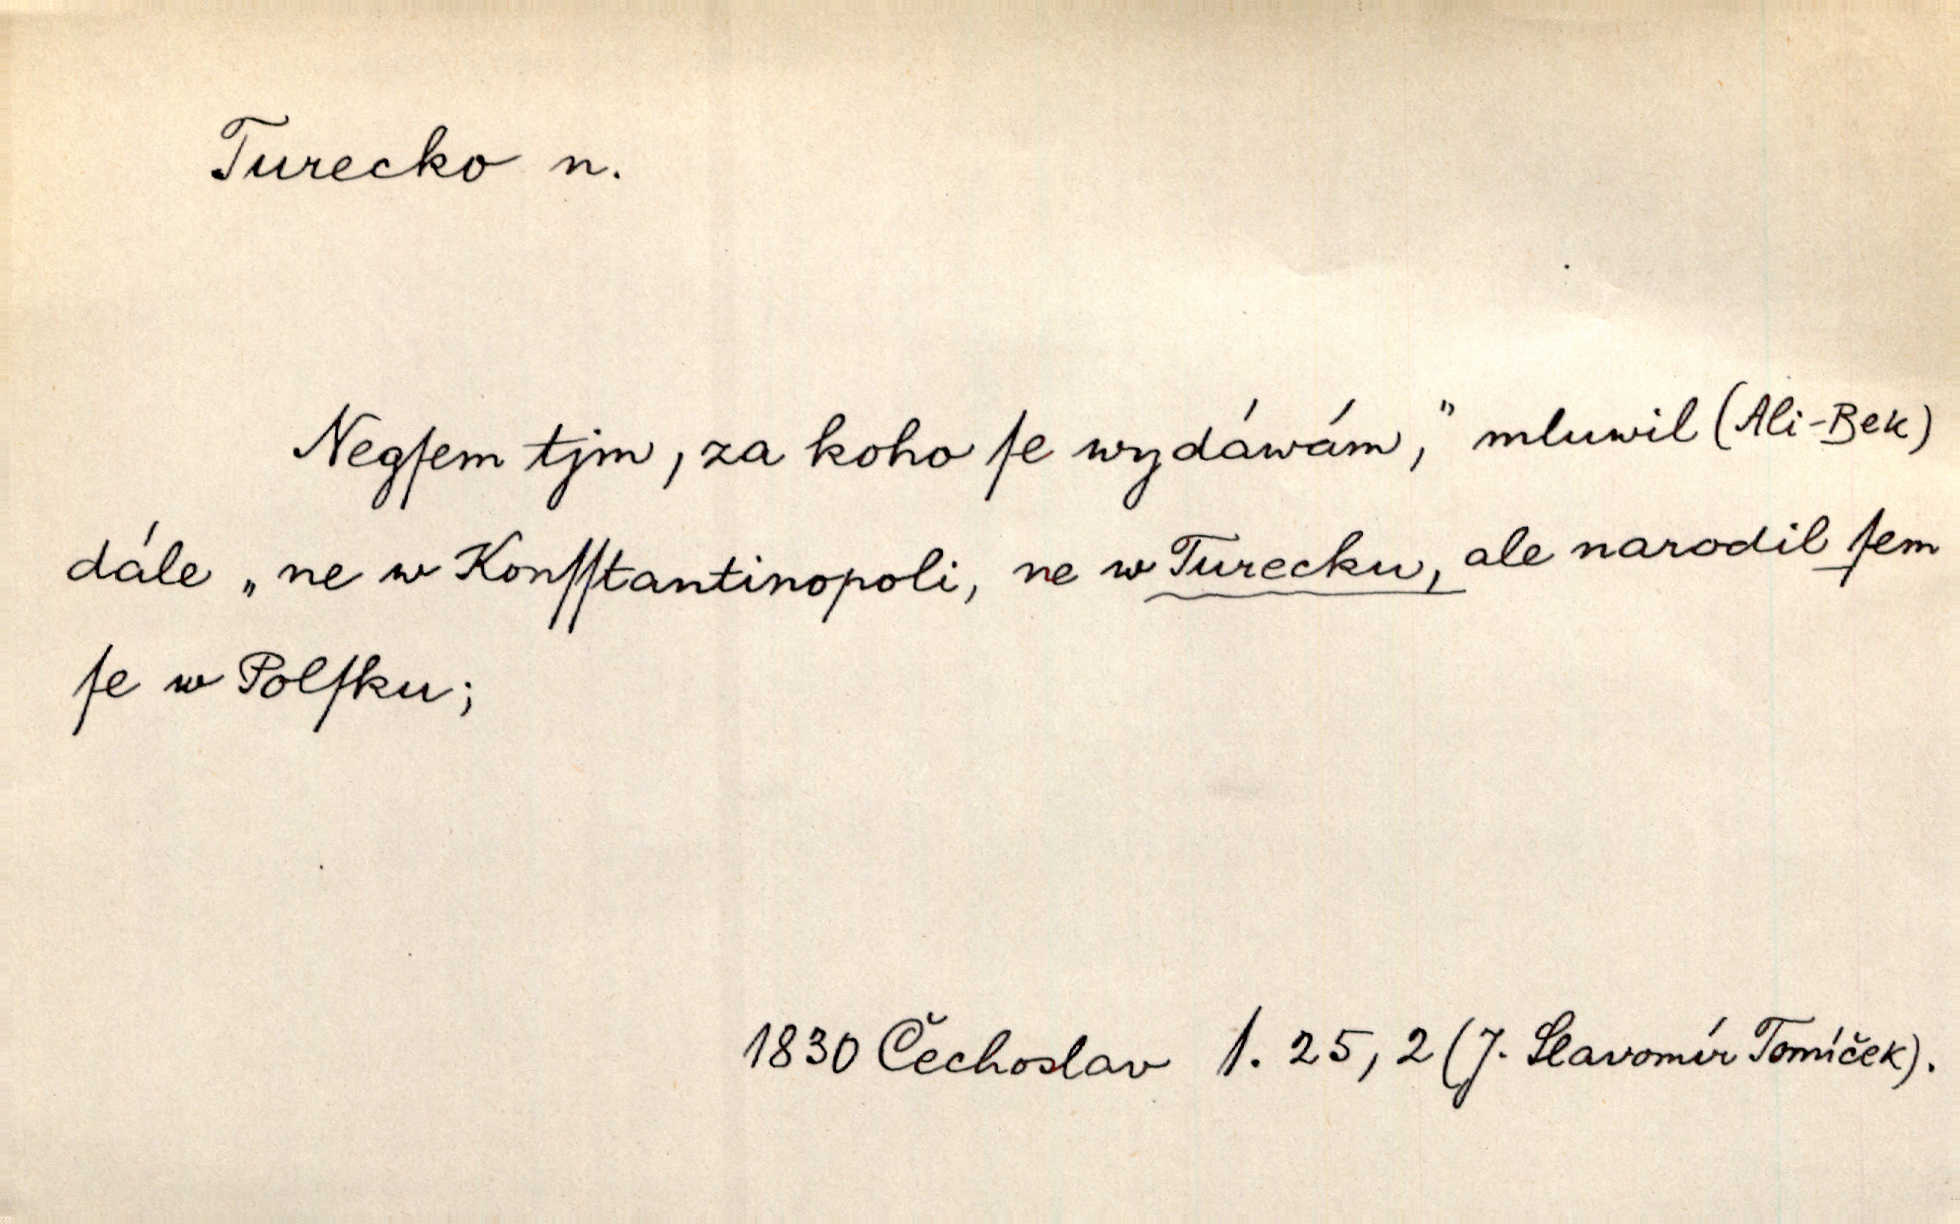 Turecko n.
Negſem tjm, za koho ſe wydáwám," mluwil (Ali-Bek)
dále „ne w Konſſtantinopoli, ne w Turecku, ale narodil ſem
ſe w Polſku;
1830 Čechoslav ſ. 25, 2 (J. Slavomír Tomíček).